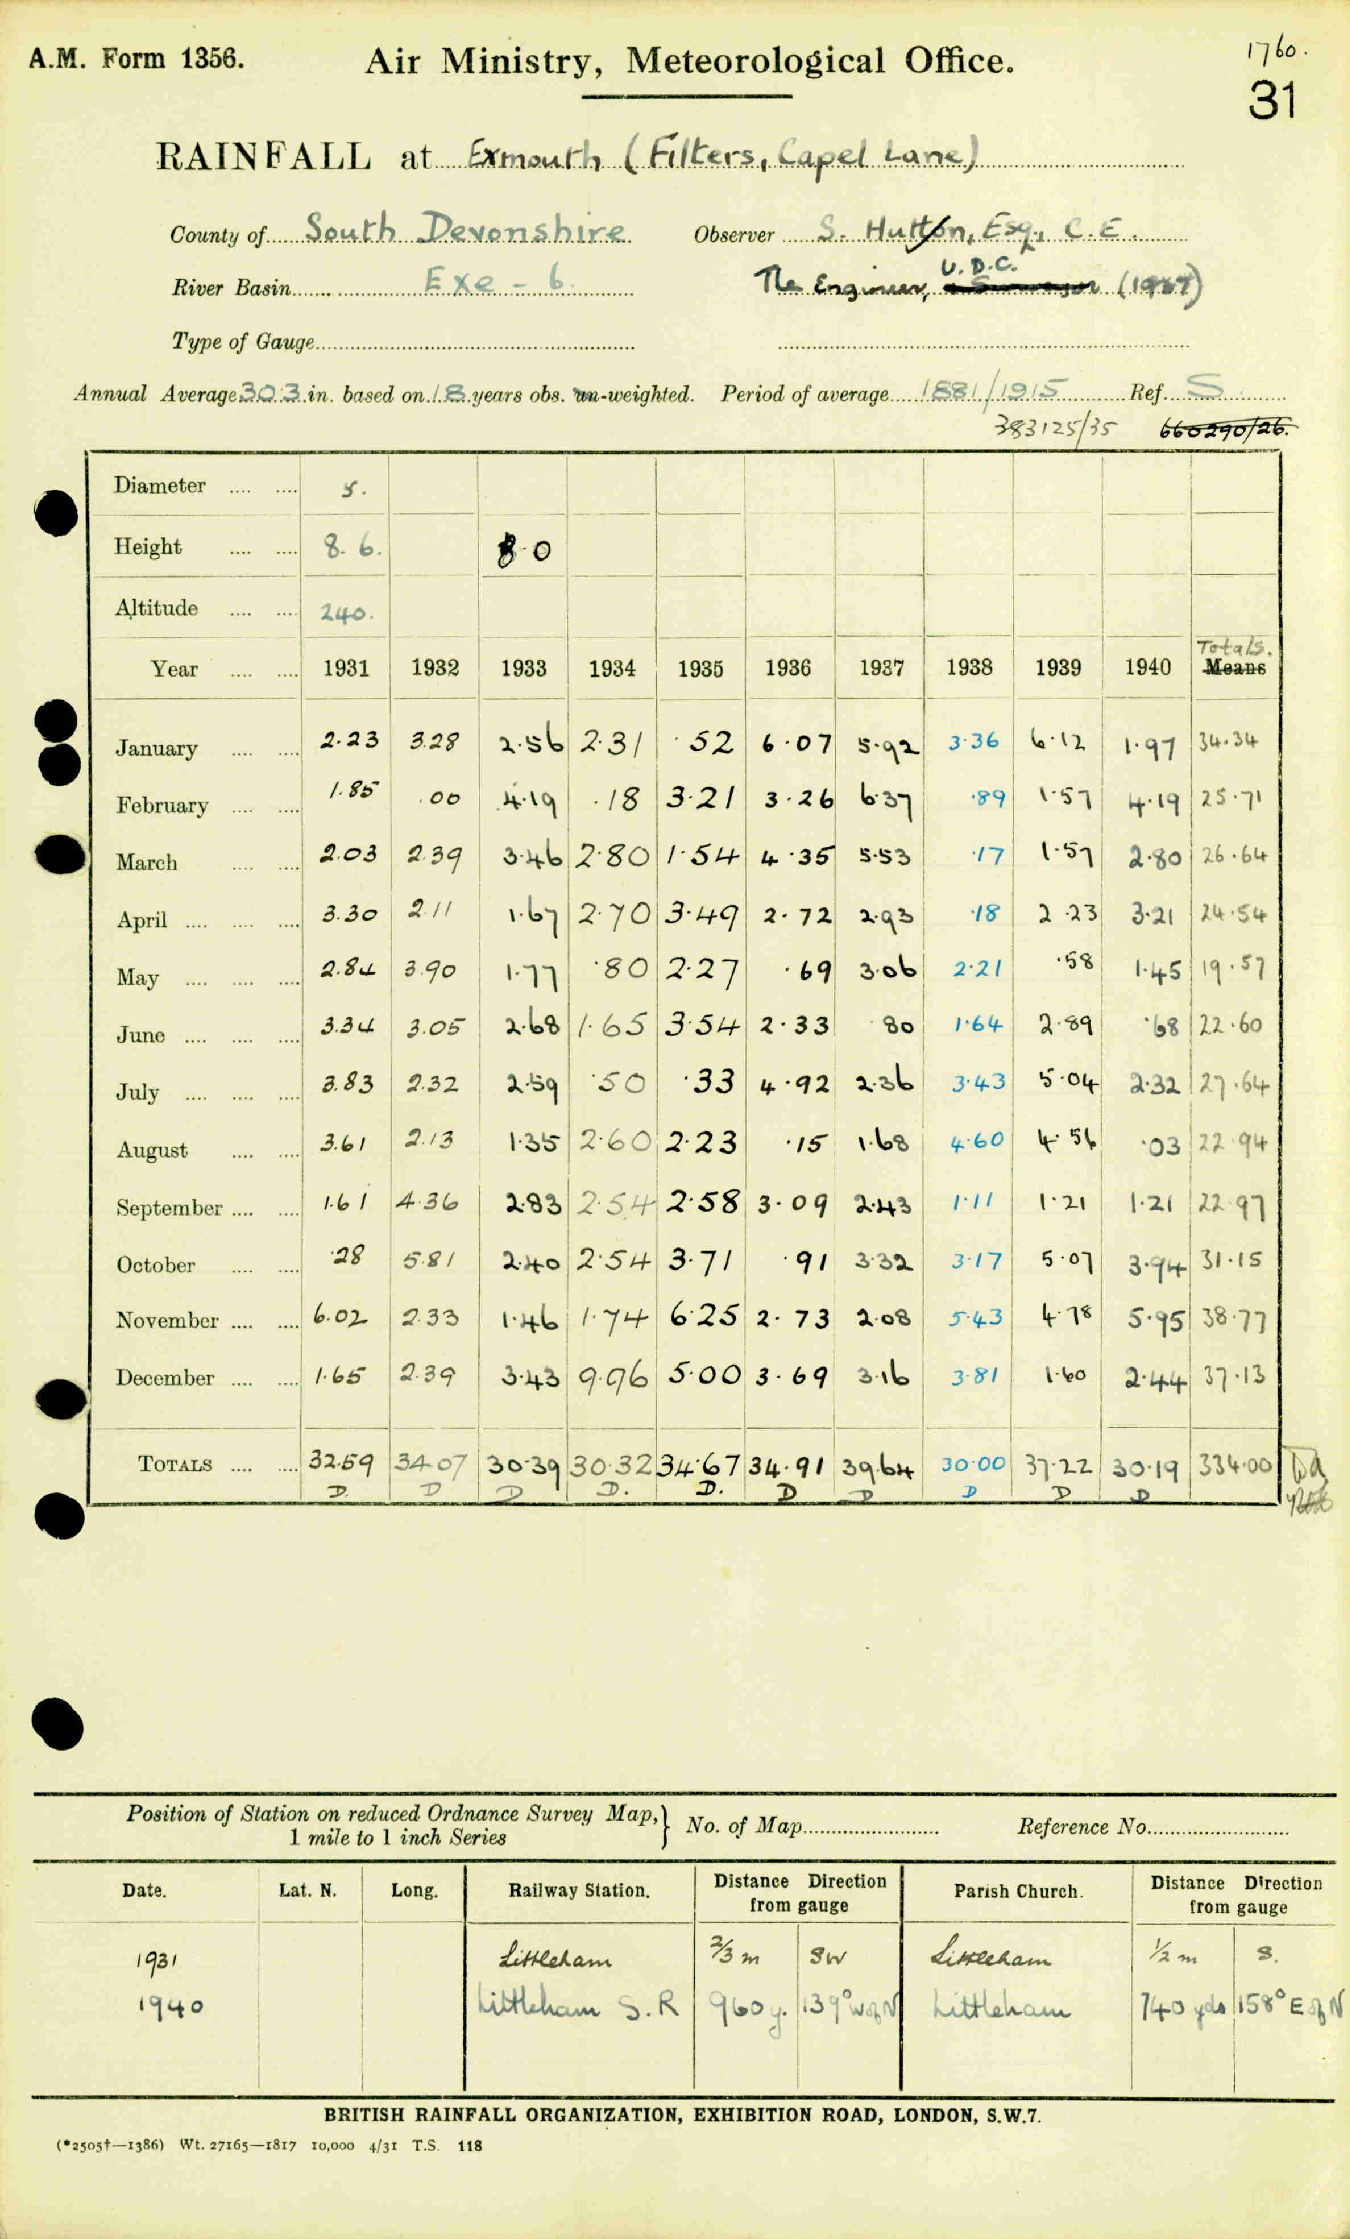 A.M. Form 1356.
Air Ministry, Meteorological Office.
1760.
31
RAINFALL at Exmouth (Filters, Capel Lane)
County of South Devonshire Observer S. Hutton, Esq., C.E.
River Basin Exe - 6. The Engineer, U.D.C.
Type of Gauge
Annual Average 30.3 in. based on 18 years obs. un-weighted. Period of average 1881/1915 Ref. S
383125/35 660290/26.
Diameter .... .... 5.
Height .... .... 8. 6. 8 0
Altitude .... .... 240.
Year .... .... 1931 1932 1933 1934 1935 1936 1937 1938 1939 1940 Totals. Means
January .... .... 2.23 3.28 2.56 2.31 .52 6.07 5.92 3.36 6.12 1.97 34.34
February .... .... 1.85 .00 4.19 .18 3.21 3.26 6.37 .89 1.57 4.19 25.71
March .... .... 2.03 2.39 3.46 2.80 1.54 4.35 5.53 .17 1.57 2.80 26.64
April .... .... .... 3.30 2.11 1.67 2.70 3.49 2.72 2.93 .18 2.23 3.21 24.54
May .... .... .... 2.84 3.90 1.77 .80 2.27 .69 3.06 2.21 .58 1.45 19.57
June .... .... .... 3.34 3.05 2.68 1.65 3.54 2.33 .80 1.64 2.89 .68 22.60
July .... .... .... 3.83 2.32 2.59 .50 .33 4.92 2.36 3.43 5.04 2.32 27.64
August .... .... 3.61 2.13 1.35 2.60 2.23 .15 1.68 4.60 4.56 .03 22.94
September .... .... 1.61 4.36 2.83 2.54 2.58 3.09 2.43 1.11 1.21 1.21 22.97
October .... .... .28 5.81 2.40 2.54 3.71 .91 3.32 3.17 5.07 3.94 31.15
November .... .... 6.02 2.33 1.46 1.74 6.25 2.73 2.08 5.43 4.78 5.95 38.77
December .... .... 1.65 2.39 3.43 9.96 5.00 3.69 3.16 3.81 1.60 2.44 37.13
TOTALS .... .... 32.59 34.07 30.39 30.32 34.67 34.91 39.64 30.00 37.22 30.19 334.00
D. D D D. D. D D D D D
Position of Station on reduced Ordnance Survey Map, } No. of Map Reference No.
1 mile to 1 inch Series
Date. Lat. N. Long. Railway Station. Distance from gauge Direction Parish Church. Distance from gauge Direction
1931 Littleham 2/3 m SW Littleham 1/2 m S.
1940 Littleham S.R 960 y. 139° W of N Littleham 740 yds 158° E of N
BRITISH RAINFALL ORGANIZATION, EXHIBITION ROAD, LONDON, S.W.7.
(*2505†—1386) Wt. 27165—1817 10,000 4/31 T.S. 118